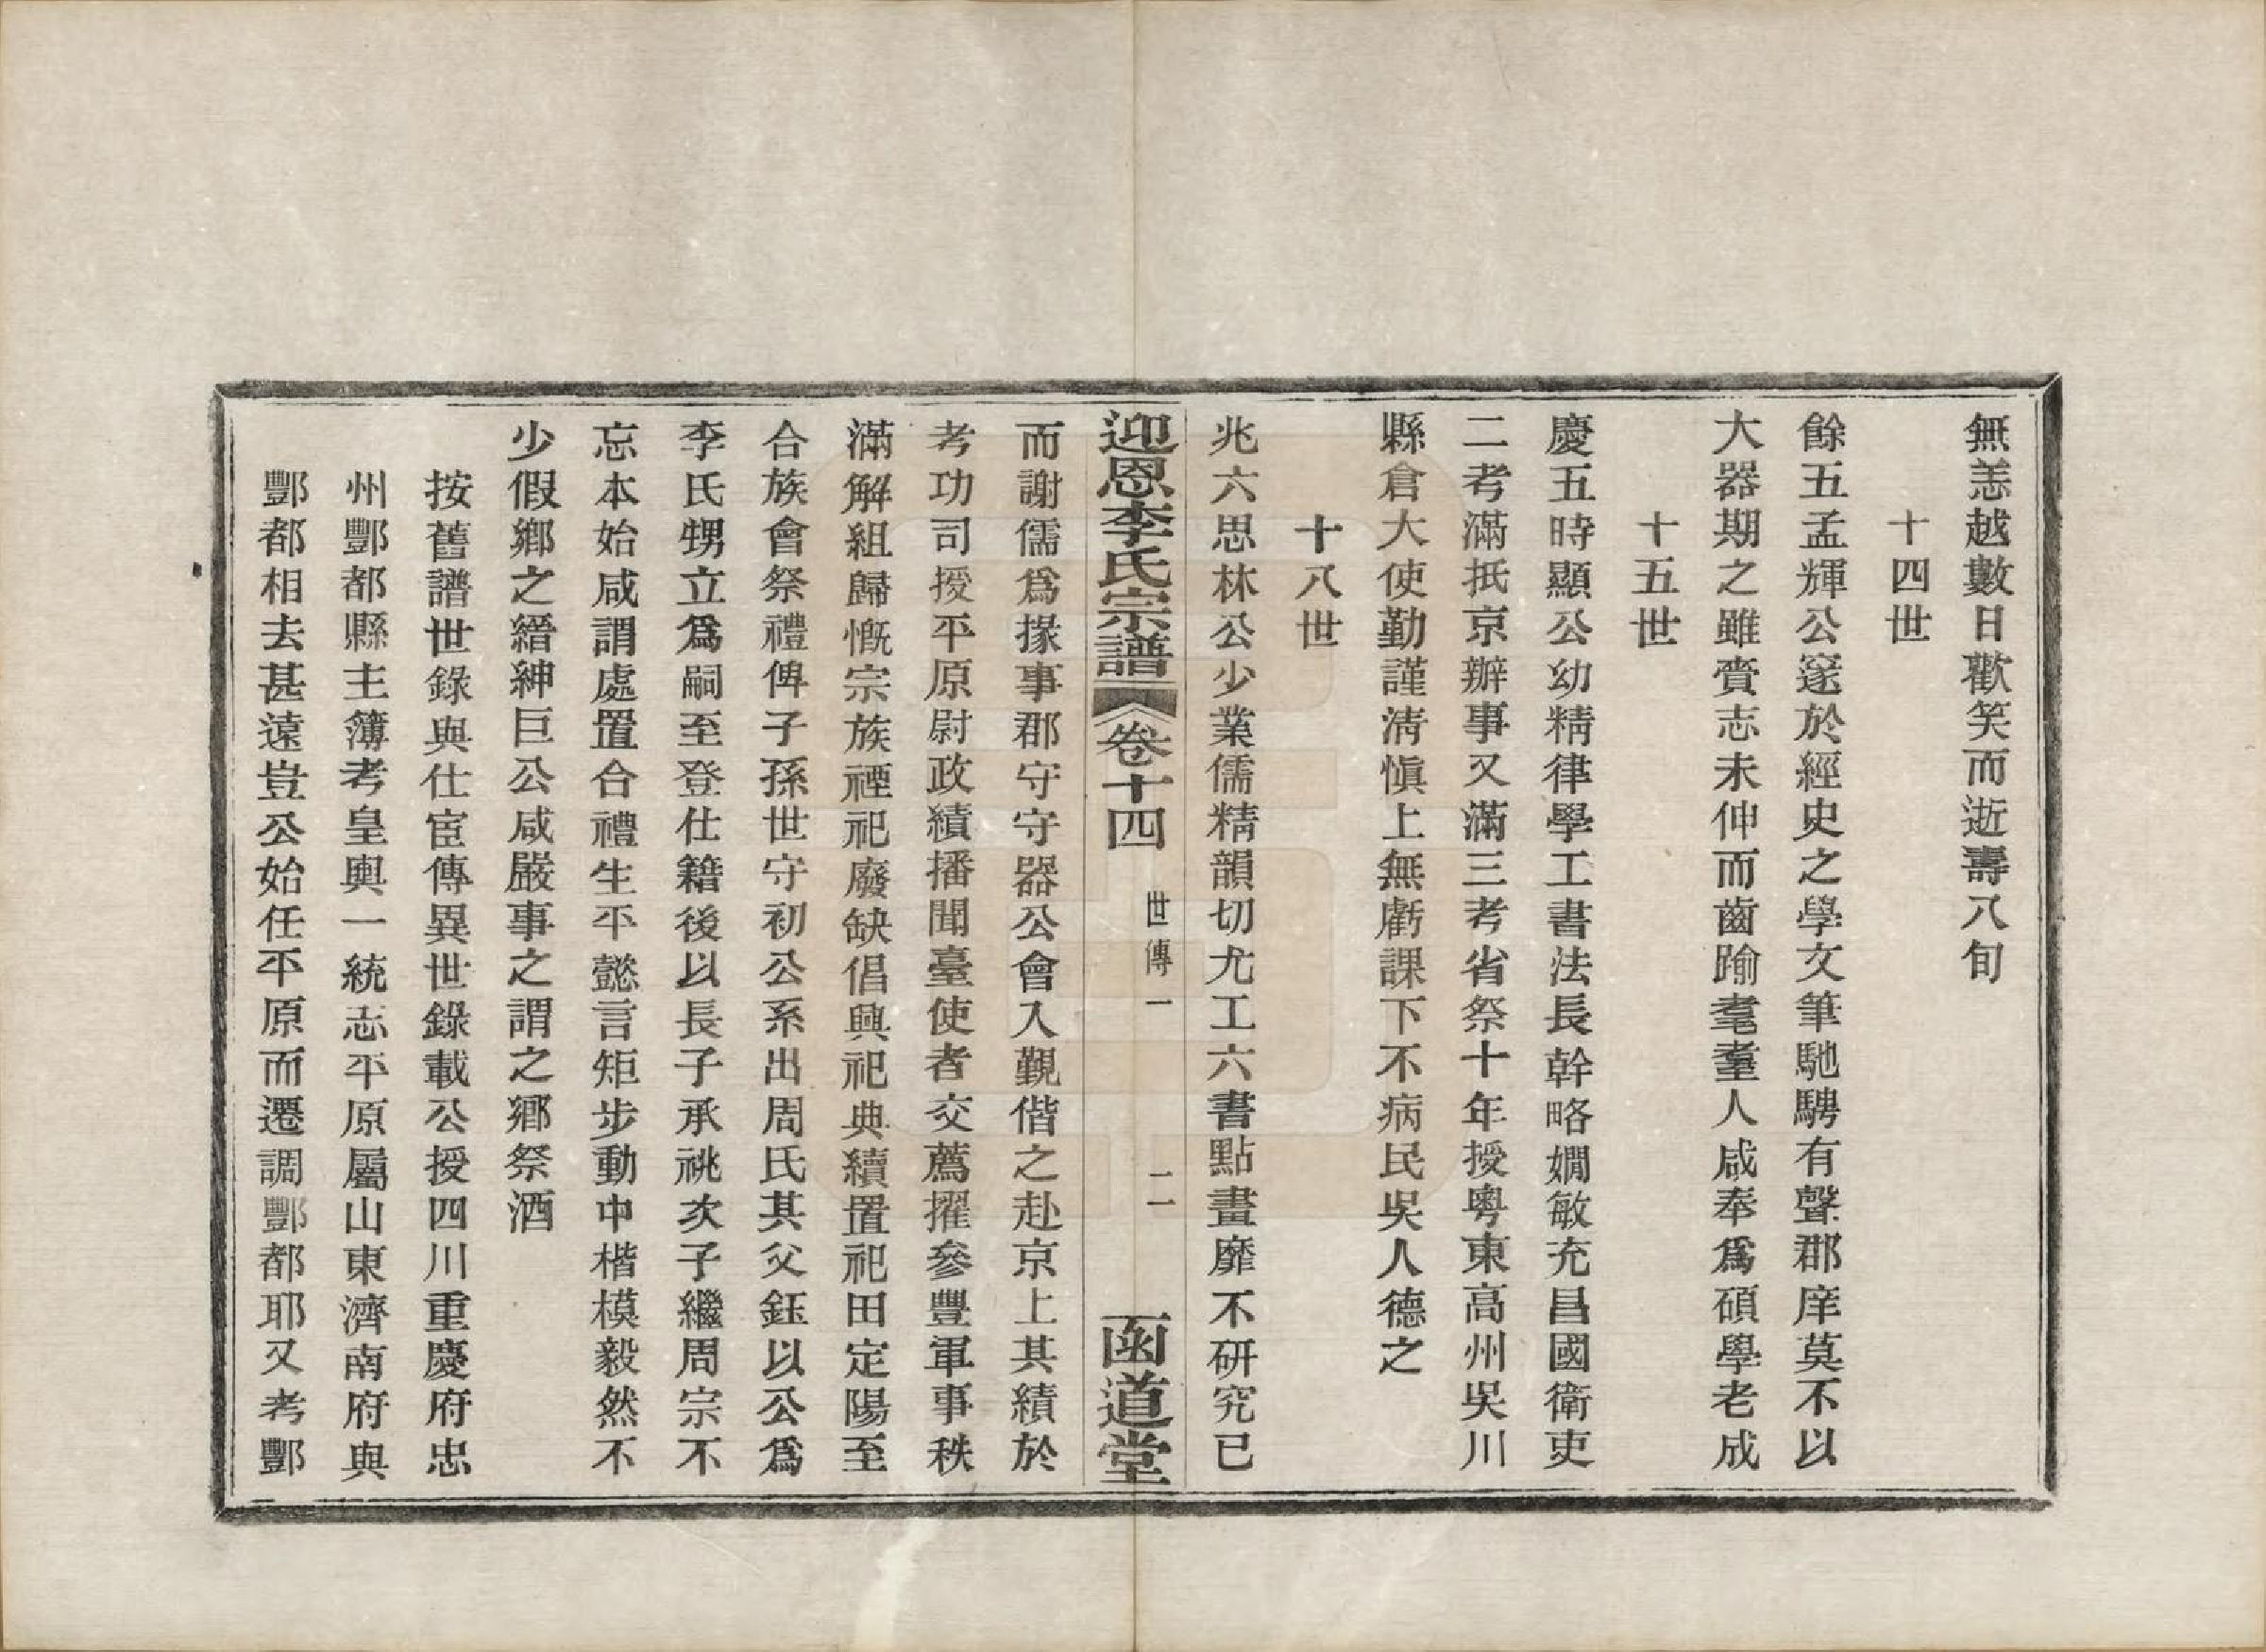 無恙越數日歡笑而逝壽八旬
十四世
餘五孟輝公邃於經史之學文筆馳騁有聲郡庠莫不以
大器期之雖賫志未伸而齒踰耄耋人咸奉爲碩學老成
十五世
慶五時顯公幼精律學工書法長幹略嫺敏充昌國衛吏
二考滿抵京辦事又滿三考省祭十年授粵東高州吳川
縣倉大使勤謹淸愼上無虧課下不病民吳人德之
十八世
兆六思林公少業儒精韻切尤工六書點畫靡不研究已
迎恩李氏宗譜 卷十四 世傳一 二 函道堂
而謝儒爲掾事郡守守器公會入覲偕之赴京上其績於
考功司授平原尉政績播聞臺使者交薦擢參豐軍事秩
滿解組歸慨宗族禋祀廢缺倡興祀典續置祀田定陽至
合族會祭禮俾子孫世守初公系出周氏其父鈺以公爲
李氏甥立爲嗣至登仕籍後以長子承祧次子繼周宗不
忘本始咸謂處置合禮生平懿言矩步動中楷模毅然不
少假鄉之縉紳巨公咸嚴事之謂之鄉祭酒
按舊譜世錄與仕宦傳異世錄載公授四川重慶府忠
州酆都縣主簿考皇輿一統志平原屬山東濟南府與
酆都相去甚遠豈公始任平原而遷調酆都耶又考酆